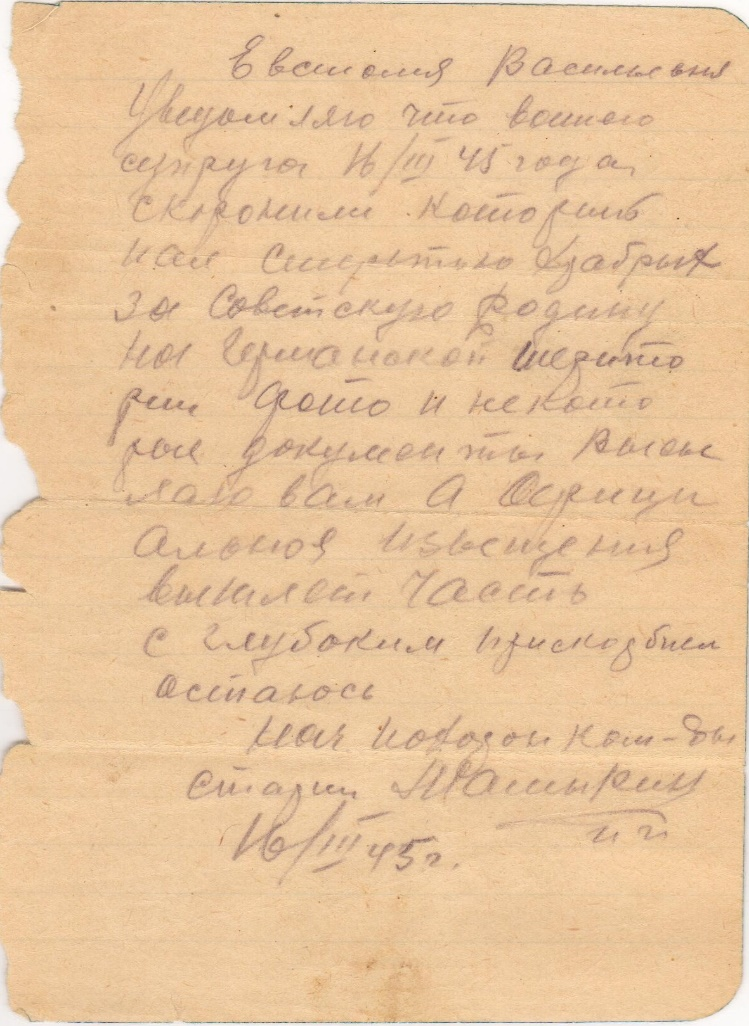 Евстолия Васильевна
Уведомляю что вошего
супруга 16/III 45 года
схоронили которий
пал смертью храбрых
за Советскую Родину
на Германской террито
рии фото и некото
рые документы Высы
лаю вам А Офици
альноя извещения
вышлет Часть
с глубоким прискорбием
остаюсь
нач похозон ком-ды
старш
16/III 45 г.